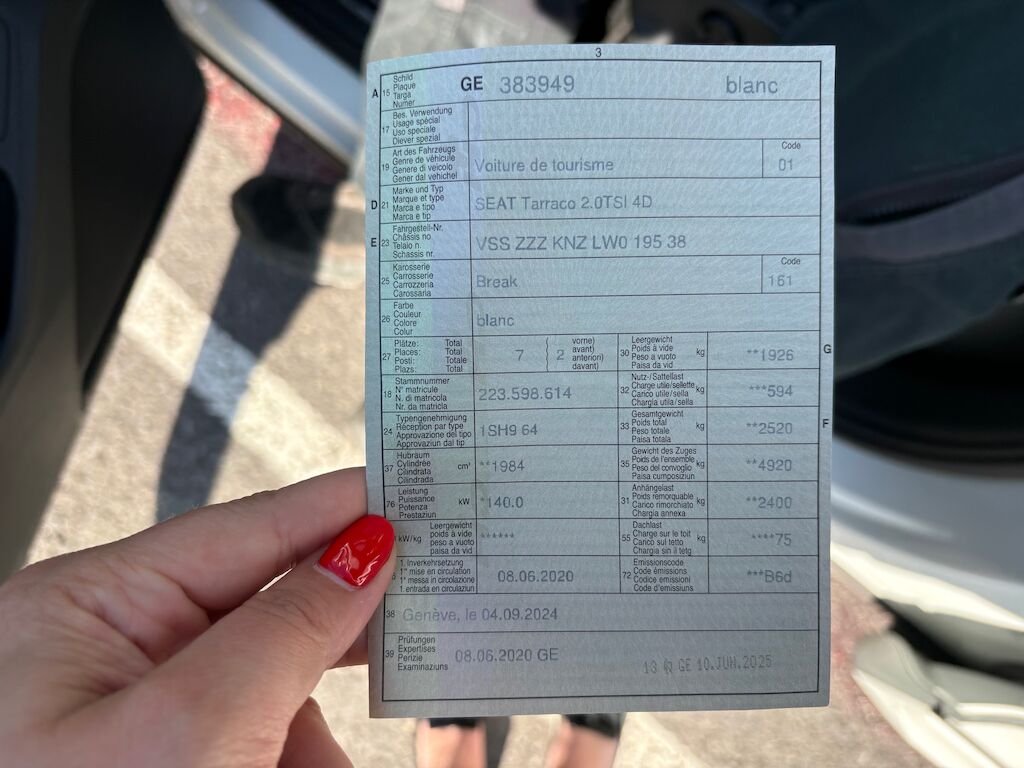 3
A 15 Schild
Plaque
Targa
Numer
GE 383949 blanc
17 Bes. Verwendung
Usage spécial
Uso speciale
Diever spezial
19 Art des Fahrzeugs
Genre de véhicule
Genere di veicolo
Gener dal vehichel
Voiture de tourisme
Code
01
D 21 Marke und Typ
Marque et type
Marca e tipo
Marca e tip
SEAT Tarraco 2.0TSI 4D
E 23 Fahrgestell-Nr.
Châssis no
Telaio n.
Schassis nr.
VSS ZZZ KNZ LW0 195 38
25 Karosserie
Carrosserie
Carrozzeria
Carossaria
Break
Code
151
26 Farbe
Couleur
Colore
Colur
blanc
27 Plätze: Total
Places: Total
Posti: Totale
Plazs: Total
7 { 2 vorne)
avant)
anteriori)
davant)
30 Leergewicht
Poids à vide
Peso a vuoto
Paisa da vid
kg **1926 G
18 Stammnummer
N° matricule
N. di matricola
Nr. da matricla
223.598.614
32 Nutz-/Sattellast
Charge utile/sellette
Carico utile/sella
Chargia utila/sella
kg ***594
24 Typengenehmigung
Réception par type
Approvazione del tipo
Approvaziun dal tip
1SH9 64
33 Gesamtgewicht
Poids total
Peso totale
Paisa totala
kg **2520 F
37 Hubraum
Cylindrée
Cilindrata
Cilindrada
cm³ **1984
35 Gewicht des Zuges
Poids de l'ensemble
Peso del convoglio
Paisa cumposiziun
kg **4920
76 Leistung
Puissance
Potenza
Prestaziun
kW *140.0
31 Anhängelast
Poids remorquable
Carico rimorchiato
Chargia annexa
kg **2400
kW/kg Leergewicht
poids à vide
peso a vuoto
paisa da vid
******
55 Dachlast
Charge sur le toit
Carico sul tetto
Chargia sin il tetg
kg ****75
1. Inverkehrsetzung
1re mise en circulation
1a messa in circolazione
1. entrada en circulaziun
08.06.2020
72 Emissionscode
Code émissions
Codice emissioni
Code d'emissiuns
***B6d
38 Genève, le 04.09.2024
39 Prüfungen
Expertises
Perizie
Examinaziuns
08.06.2020 GE
13 GE 10.JUN.2025